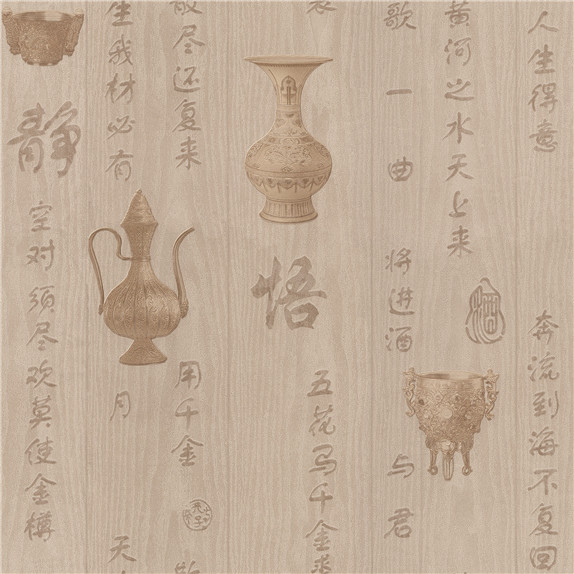 人生得意
奔流到海不复回
黄河之水天上来
歌一曲
将进酒
与君
五花马千金裘
悟
散尽还复来
用千金
生我材必有
月
天
静
空对
须尽欢莫使金樽